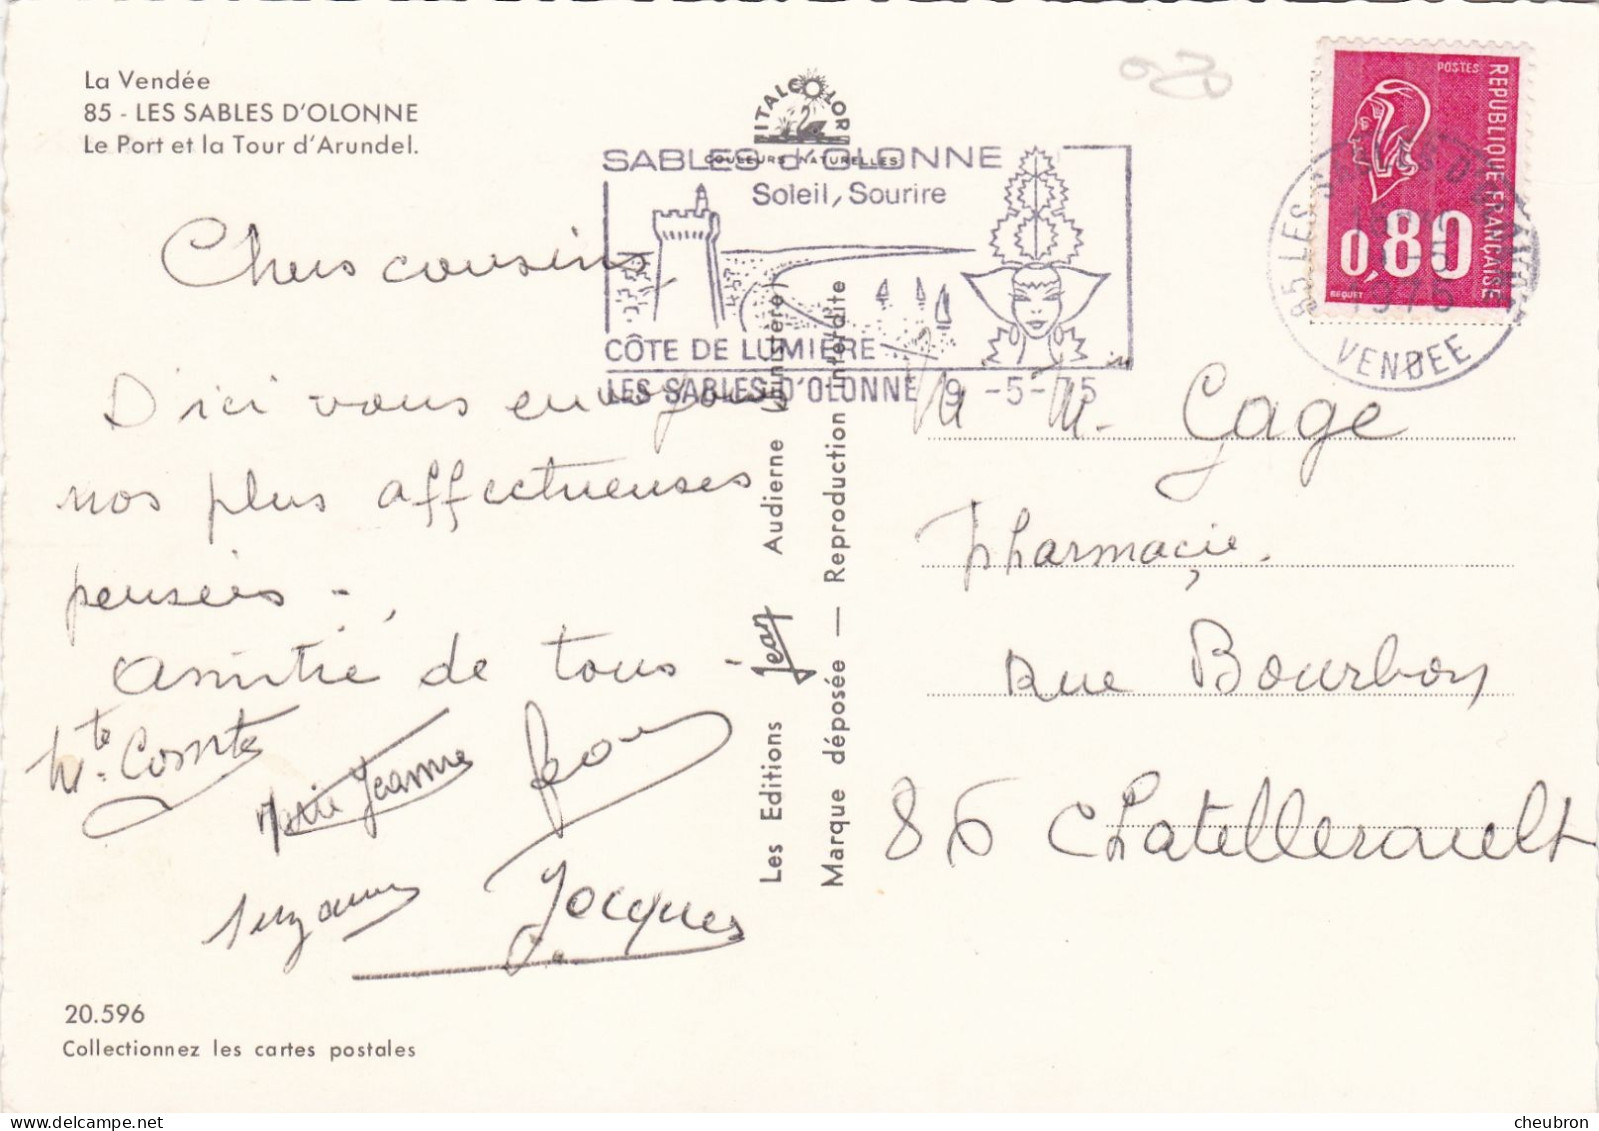 La Vendée
85 - LES SABLES D'OLONNE
Le Port et la Tour d'Arundel.
ITALCOLOR
COULEURS NATURELLES
SABLES d'OLONNE
Soleil, Sourire
CÔTE DE LUMIERE
LES SABLES D'OLONNE 9 -5-75
POSTES
REPUBLIQUE FRANÇAISE
0,80
BEQUET
85 LES SABLES D'OLONNE
1975
VENDEE
Chers cousins
D'ici vous envoyons
nos plus affectueuses
pensées -
amitié de tous -
Comte
Marie Jeanne
Suzanne
Jacques
Les Editions Jean Audierne (Finistère)
Marque déposée — Reproduction interdite
M. Gage
Pharmacie.
Rue Bourbon
86 Chatellerault
20.596
Collectionnez les cartes postales
cheubron